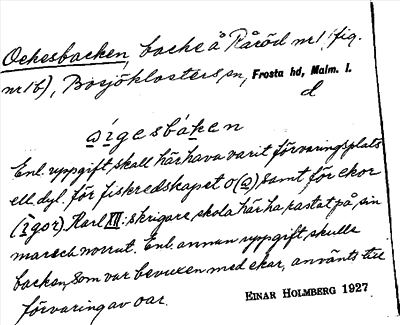 Oekesbacken, backe å Råröd nr 1 (fig.
nr 1 b), Bosjöklosters sn, Frosta hd, Malm. l.
d
ωígesbákен
Enl. uppgift, skall här hava varit förvaringsplats
ell. dyl. för fiskredskapet o(a) samt för ekor
(igor). Karl XII:s krigare, skola här ha rastat på sin
marsch norrut. Enl. annan uppgift, skulle
backen, som var bevuxen med ekar, använts till
förvaring av oar.
EINAR HOLMBERG 1927